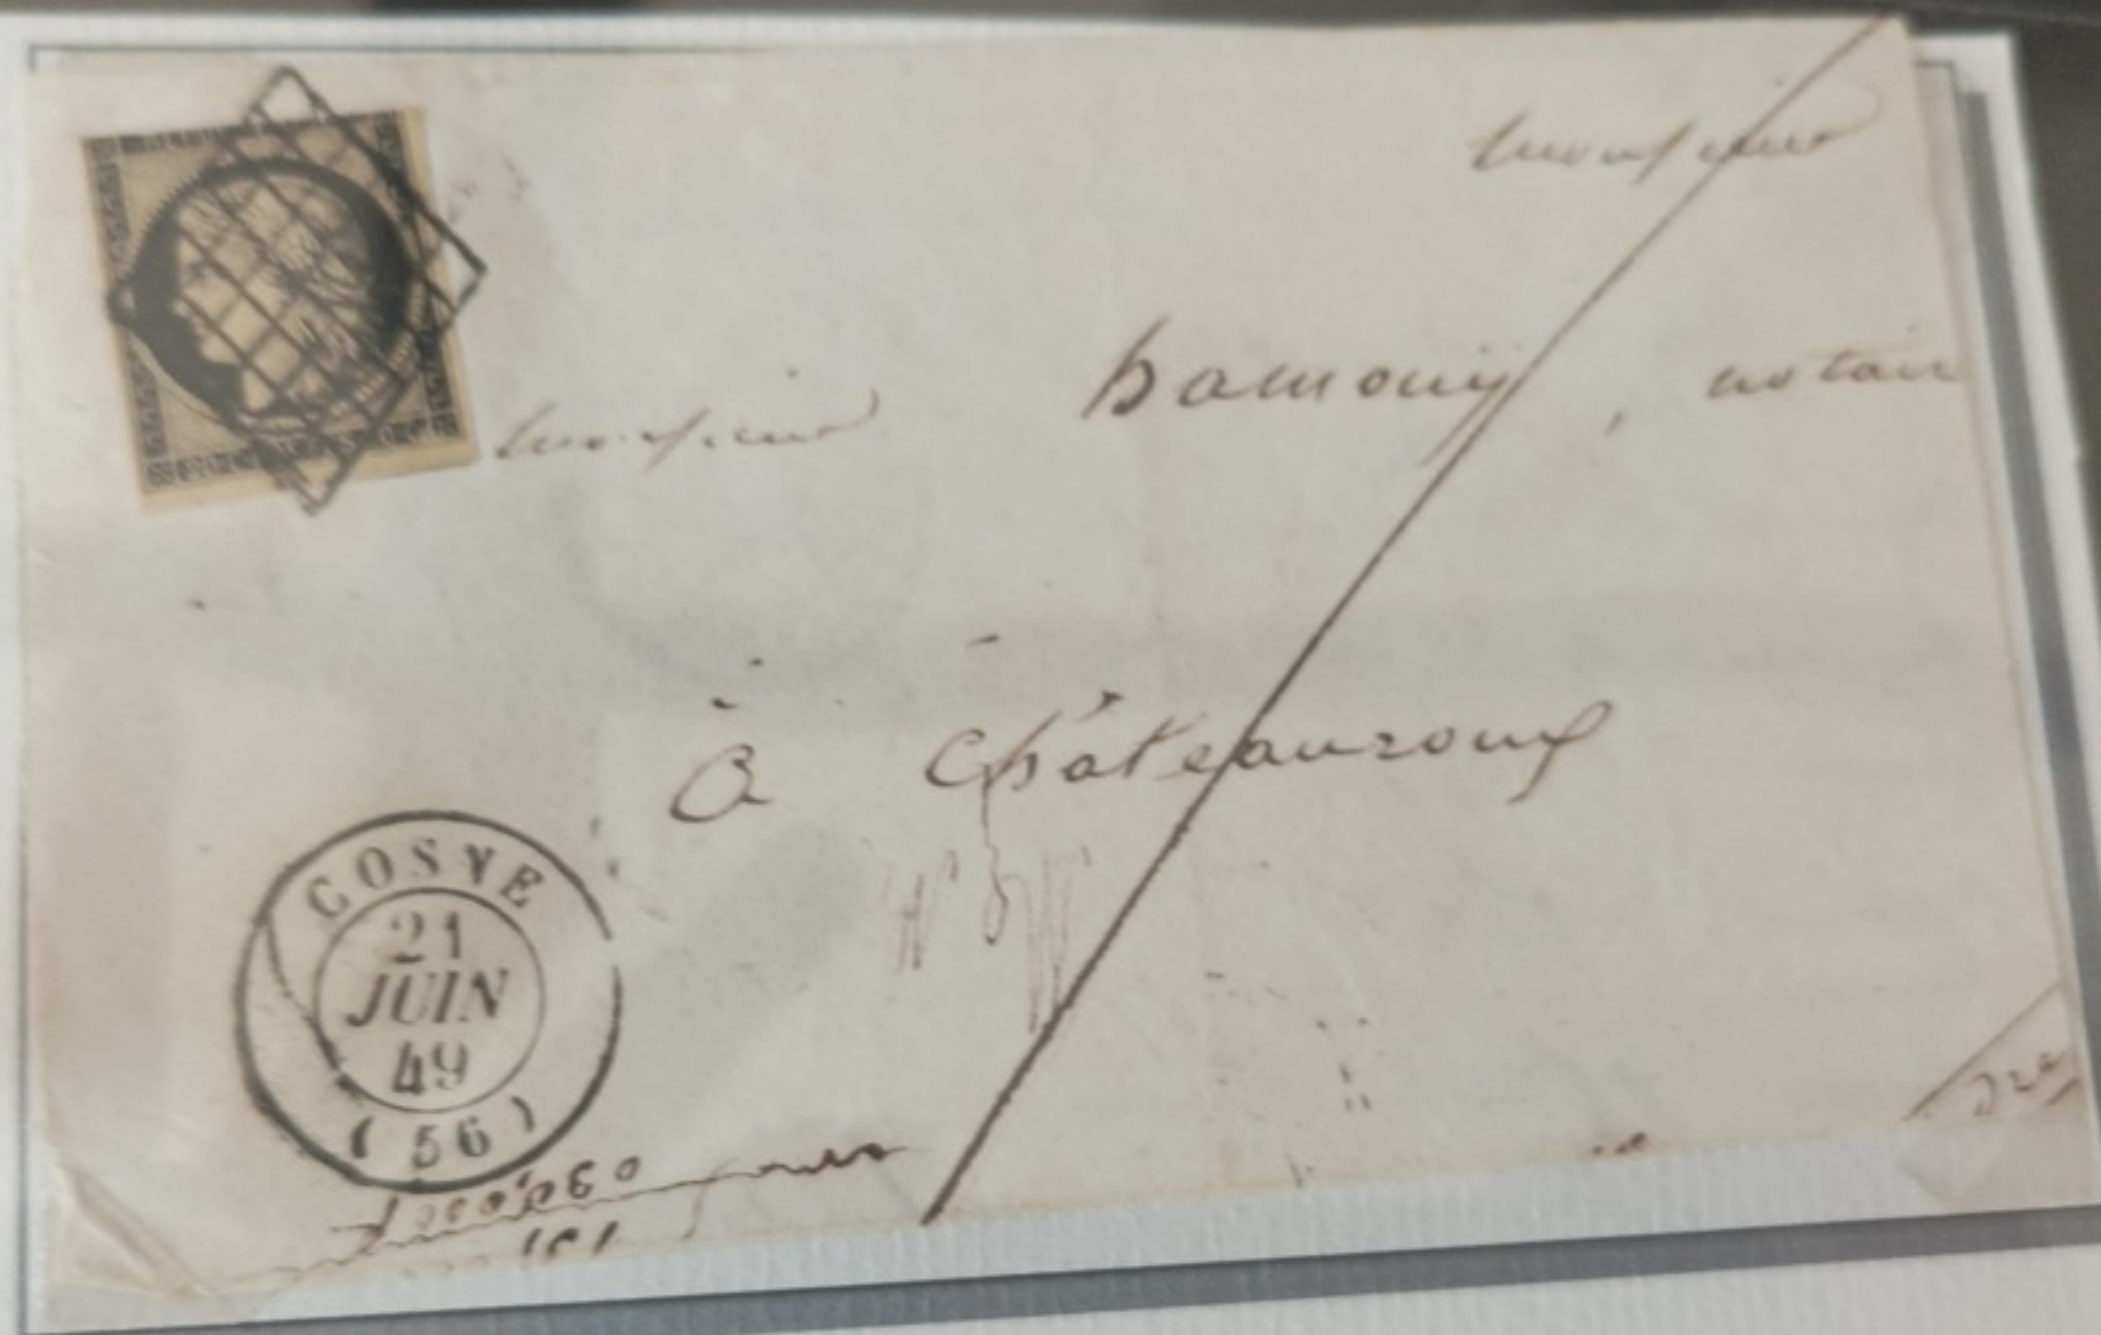 Monsieur
Monsieur hamouy, notaire
à Châteauroux
COSNE
21
JUIN
49
(56)